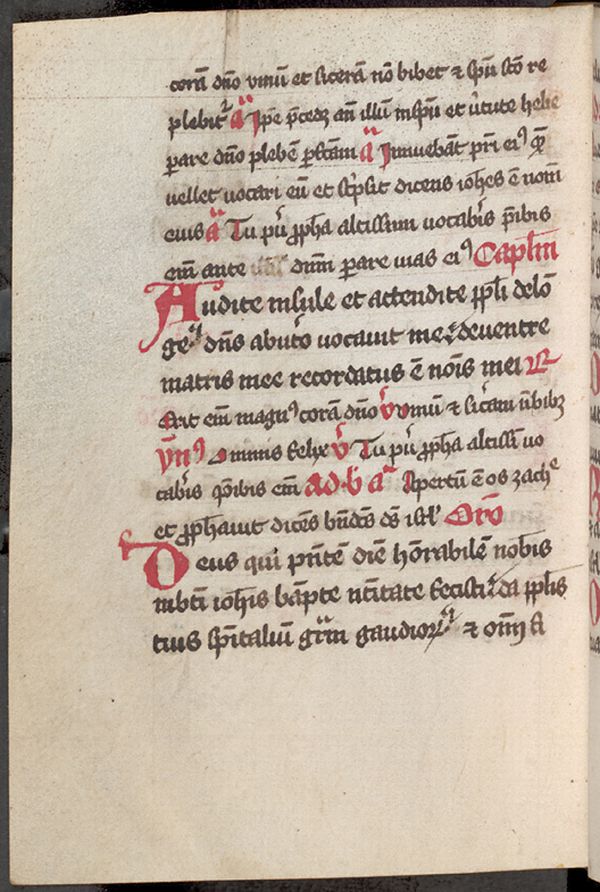 corā dn̄o vinū et sicerā nō bibet ⁊ sp̄u sc̄o re
plebit᷑ a Ip̄e p̄cedꝫ an̄ illū in sp̄u et v̾tute helie
ꝑare dn̄o plebē ꝑfc̄am a Innuebāt pr̄i eiꝰ qm̄
vellet vocari eū et sc̾psit dicens ioh̄es ē nom̄
eius a Tu pu̾ ꝓph̄a altissimi vocab̾is p̄ibis
em̄ ante dnm̄ ꝑare vias eiꝰ Capl̄m
Audite insule et attendite ppl̄i de lō
ge dn̄s ab ut̾o vocauit me de ventre
matris mee recordatus ē nōis mei R
Erit em̄ magnꝰ corā dn̄o v vinū ⁊ sic̾am n̄ bibꝫ
ymꝰ O nimis felix v Tu pu̾ ꝓph̄a altissī vo
cab̾is p̄ibis em̄ ad b a Apertū ē os zach̾e
et ꝓph̄auit dicēs bn̄dcs̄ ds̄ isrl̾ Orō
Deus qui pn̄tē diē hōrabilē nob̄is
in bt̄i ioh̄is bapt̄e natīuitate fecisti da ppl̄is
tuis sp̄italiū gr̄am gaudioꝝ ⁊ om̄i fi